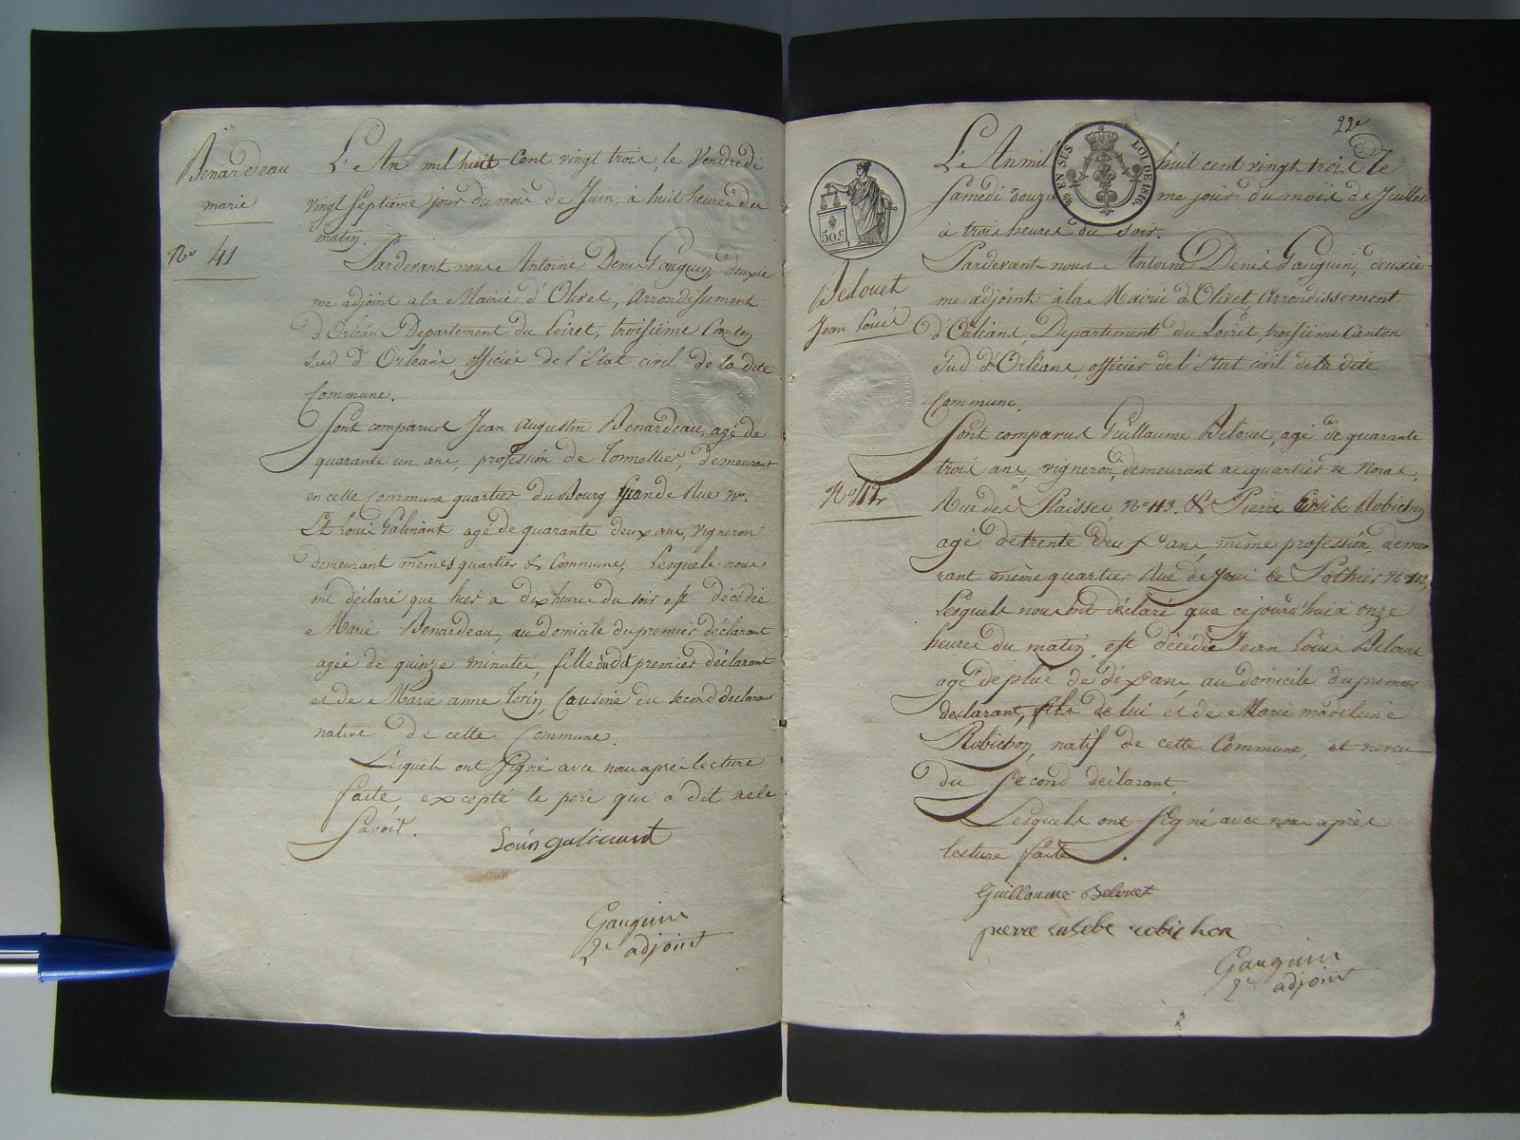 Benardeau
marie
No 41
L'An mil huit Cent vingt trois, le Vendredi
vingt septième jour du mois de Juin, à huit heures du
matin.
Pardevant nous Antoine Denis Gauguin, deuxie
me adjoint a la Mairie d'Olivet, Arrondissement
d'Orléans Departement du Loiret, troisième Canton
Sud d'Orléans, officier de l'Etat civil de la dite
Commune.
Sont comparus Jean Augustin Benardeau, agé de
quarante un ans, profession de Tonnellier, demeurant
en cette Commune quartier du Bourg grande Rue No.
Et Louis Galinant agé de quarante deux ans, vigneron
demeurant mêmes quartier & Commune, Lesquels nous
ont déclaré que hier a dix heures du soir est décédée
Marie Benardeau, au domicile du premier déclarant
agée de quinze minutes, fille du dt premier déclarant
et de Marie anne Cousine du second declara
native de cette Commune.
Lesquels ont Signé avec nous après lecture
faite, excepté le père qui a dit ne le
Savoir.
Louis galinant
Gauguin
2e adjoint
22e
50 c
EN SUS
LOI DE 1816
Belouet
Jean Louis
No 42
L'An mil huit cent vingt trois Le
Samedi douzieme jour du mois de Juillet
à trois heures du Soir.
Pardevant nous Antoine Denis Gauguin, deuxie
me adjoint à la Mairie d'Olivet Arrondissement
d'Orléans, Departement du Loiret, troisième Canton
Sud d'Orléans officier de l'Etat civil de la dite
Commune.
Sont comparus Guillaume Belouet, agé de quarante
trois ans, vigneron, demeurant au quartier de
Rue des Plaisses No 113. & Pierre Eusebe Robichon
agé de trente deux ans, même profession, demeu
rant même quartier Rue de No 112,
Lesquels nous ont déclaré que ce jourd'hui à onze
heures du matin est décédé Jean Louis Belouet
agé de plus de dix ans, au domicile du premier
declarant, fils de lui et de Marie madeleine
Robichon, natif de cette Commune, et neveu
du second déclarant,
Lesquels ont Signé avec nous après
lecture faite.
Guillaume Belouet
pierre eusebe robichon
Gauguin
2e adjoint